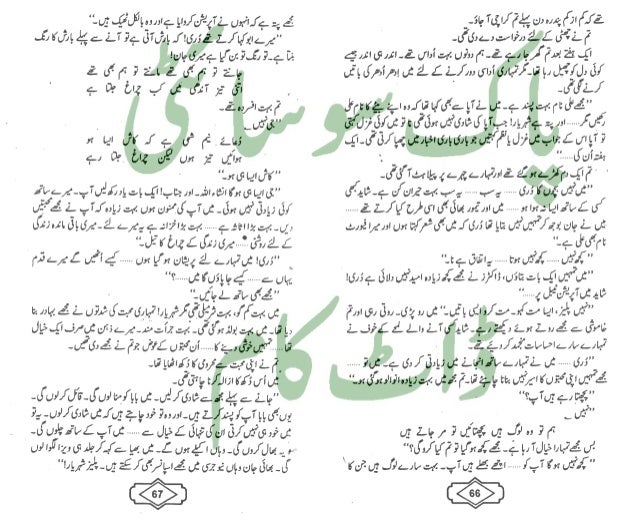 تھے کہ کم از کم پندرہ دن پہلے تم کراچی آ جاؤ۔
تم نے چھٹی کے لئے درخواست دے دی تھی۔
ایک ہفتے بعد تم گھر جا رہے تھے۔ ہم دونوں بہت اُداس تھے۔ اندر ہی اندر جیسے
کوئی دل کو چھیل رہا تھا۔ مگر تمہاری اُداسی دور کرنے کے لئے میں اِدھر اُدھر کی باتیں
کرنے لگی تھی۔
”مجھے علی نام بہت پسند ہے۔ میں نے آپا سے بھی کہا تھا کہ وہ اپنے بیٹے کا نام علی
رکھیں مگر...... اور پتہ ہے شہریار! جب آپا کی شادی نہیں ہوئی تھی نا تو میں کوئی غزل کہتی
تو آپا اس کے جواب میں غزل یا نظم کہتیں جو باری باری اخبار میں چھپا کرتی تھی۔ ایک
ہفتہ اُن کی......“
تم ایک دم کھڑے ہو گئے تھے اور تمہارے چہرے پر پیلاہٹ آ گئی تھی۔
”میں نہیں بچوں گا ذُری...... یہ سب...... یہ سب بہت حیران کن ہے۔ شاید کبھی
کسی کے ساتھ ایسا نہ ہوا ہو...... میں اور تیمور بھائی بھی اسی طرح کیا کرتے تھے......
میں نے جان بوجھ کر تمہیں نہیں بتایا تھا ذُری کہ میں بھی شعر کہتا ہوں اور میرا فیورٹ
نام بھی علی ہے۔“
”کچھ نہیں...... کچھ نہیں ہوتا...... یہ اتفاق ہے نا۔“
”میں تمہیں ایک بات بتاؤں، ڈاکٹرز نے مجھے کچھ زیادہ اُمید نہیں دلائی ہے ذُری!
شاید میں آپریشن ٹیبل پر......“
”نہیں پلیز، ایسا مت کہو۔ مت کرو ایسی باتیں۔“ میں رو پڑی۔ روتی رہی اور تم
خاموشی سے مجھے روتے ہوئے دیکھتے رہے۔ شاید کسی آنے والے لمحے کے خوف نے
تمہارے سارے احساسات منجمد کر دیئے تھے۔
”ذُری...... میں نے تمہارے ساتھ انجانے میں زیادتی کر دی ہے۔ میں تو......
مجھے تمہیں اپنی محبتوں کا اسیر نہیں بنانا چاہئے تھا۔ تم مجھ میں بہت زیادہ انوالو ہو گئی ہو۔“
”پچھتا رہے ہیں آپ؟“
”نہیں
ہم تو وہ لوگ ہیں پچھتائیں تو مر جاتے ہیں
بس مجھے تمہارا خیال آ رہا ہے۔ مجھے کچھ ہو گیا تو تم کیا کرو گی؟“
”کچھ نہیں ہو گا آپ کو...... اچھے بھلے ہیں آپ۔ بہت سارے لوگ ہیں جن کا
66
مجھے پتہ ہے کہ انہوں نے آپریشن کروایا ہے اور وہ بالکل ٹھیک ہیں۔“
”میرے ابو کہا کرتے تھے ذُری! کہ بارش آتی ہے تو آنے سے پہلے بارش کا رنگ
بنتا ہے۔ تو رنگ تو بن گیا ہے میری جان!
جانتے تو ہم بھی تھے مانتے تو ہم بھی تھے
اتنی تیز آندھی میں کب چراغ جلتا ہے
تم بہت افسردہ تھے۔
”جی نہیں
دُعائے نیم شبی ہے کہ کاش ایسا ہو
ہوائیں تیز ہوں لیکن چراغ جلتا رہے
”کاش ایسا ہی ہو۔“
”جی ایسا ہی ہو گا انشاء اللہ۔ اور جناب! ایک بات یاد رکھ لیں آپ۔ میرے ساتھ
کوئی زیادتی نہیں ہوئی۔ میں آپ کی ممنون ہوں بہت زیادہ کہ آپ نے مجھے محبتیں
دیں۔ بہت بڑا اثاثہ ہے...... بہت بڑا خزانہ ہے یہ میرے لئے۔ میری باقی ماندہ زندگی
کے لئے روشنی...... میری زندگی کے چراغ کا تیل۔“
”ذُری! میں تمہارے لئے پریشان ہو گیا ہوں...... کیسے اُٹھیں گے میرے قدم
یہاں سے...... کیسے جا پاؤں گا میں......؟“
”مجھے بھی ساتھ لے جائیں۔“
میں بہت کم گو، بہت شرمیلی تھی مگر شہریار! تمہاری محبت کی شدتوں نے مجھے بہادر بنا
دیا تھا۔ میں بہت بولڈ ہو گئی تھی۔ بہت جرأت مند۔ میرے ذہن میں صرف ایک خیال
تھا...... تمہیں خوشی دینے کا...... اُن محبتوں کے عوض جو تم نے مجھے دی تھیں۔
تم نے اپنی محبت سے محرومی کا دُکھ اُٹھایا تھا۔
میں اُس دُکھ کا ازالہ کرنا چاہتی تھی۔
”جانے سے پہلے مجھ سے شادی کر لیں۔ میں بابا کو منا لوں گی۔ قائل کر لوں گی۔
یوں بھی بابا آپ کو پسند کرتے ہیں۔ اور وہ تو خود چاہتے ہیں کہ میں شادی کر لوں۔ یہ تو
میں خود ہی نہیں کرتی اُن کی تنہائی کے خیال سے...... میں آپ کے ساتھ چلوں گی۔
یہ بھال کروں گی۔ وہاں اکیلے ہوں گے۔ میں بھیا سے کہہ کر جلد ہی ویزا لگوا لوں
گی۔ بھائی جان وہاں نیو جرسی میں مجھے اسپانسر بھی کر سکتے ہیں۔ پلیز شہریار!“
67
پاک سوسائٹی
ڈاٹ کام